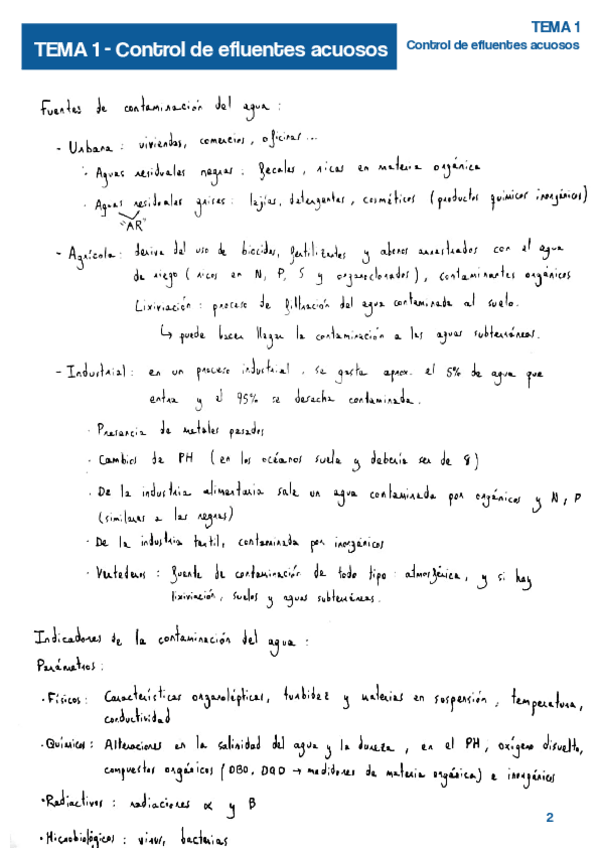 TEMA 1
Control de efluentes acuosos
TEMA 1 - Control de efluentes acuosos
Fuentes de contaminación del agua :
- Urbana : viviendas, comercios, oficinas ...
· Aguas residuales negras : fecales, ricas en materia orgánica
· Aguas residuales grises : lejías, detergentes, cosméticos (productos químicos inorgánicos)
"AR"
- Agrícola : deriva del uso de biocidas, fertilizantes y abonos arrastrados con el agua
de riego (ricos en N, P, S y organoclorados), contaminantes orgánicos
Lixiviación : proceso de filtración del agua contaminada al suelo.
↳ puede hacer llegar la contaminación a las aguas subterráneas.
- Industrial : en un proceso industrial, se gasta aprox. el 5% de agua que
entra y el 95% se desecha contaminada.
· Presencia de metales pesados
· Cambios de PH (en los océanos suele y debería ser de 8)
· De la industria alimentaria sale un agua contaminada por orgánicos y N, P
(similares a las negras)
· De la industria textil, contaminada por inorgánicos
· Vertederos : fuente de contaminación de todo tipo : atmosférica, y si hay
lixiviación, suelos y aguas subterráneas.
Indicadores de la contaminación del agua :
Parámetros :
· Físicos : Características organolépticas, turbidez y materias en suspensión, temperatura,
conductividad
· Químicos : Alteraciones en la salinidad del agua y la dureza, en el PH, oxígeno disuelto,
compuestos orgánicos (DBO, DQO → medidores de materia orgánica) e inorgánicos
· Radiactivos : radiaciones α y β
· Microbiológicos : virus, bacterias
2